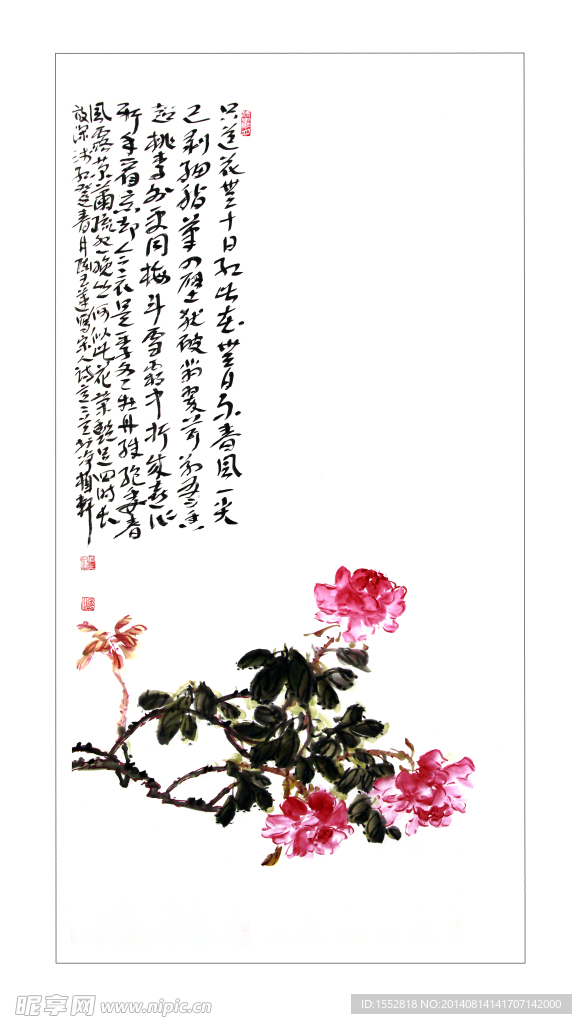 只道花無十日红此花無日不春風一尖
已剥胭脂筆四破犹包翡翠茸别有香
超桃李外更同梅斗雪霜中折来喜作
新年看忘却今晨是季冬牡丹殊絕委春
風露菊蕭疏怨晚丛何似此花荣艷足四時长
放深浅红 春月 寫宋人詩意 軒
昵享网 www.nipic.cn
ID:1552818 NO:20140814141707142000